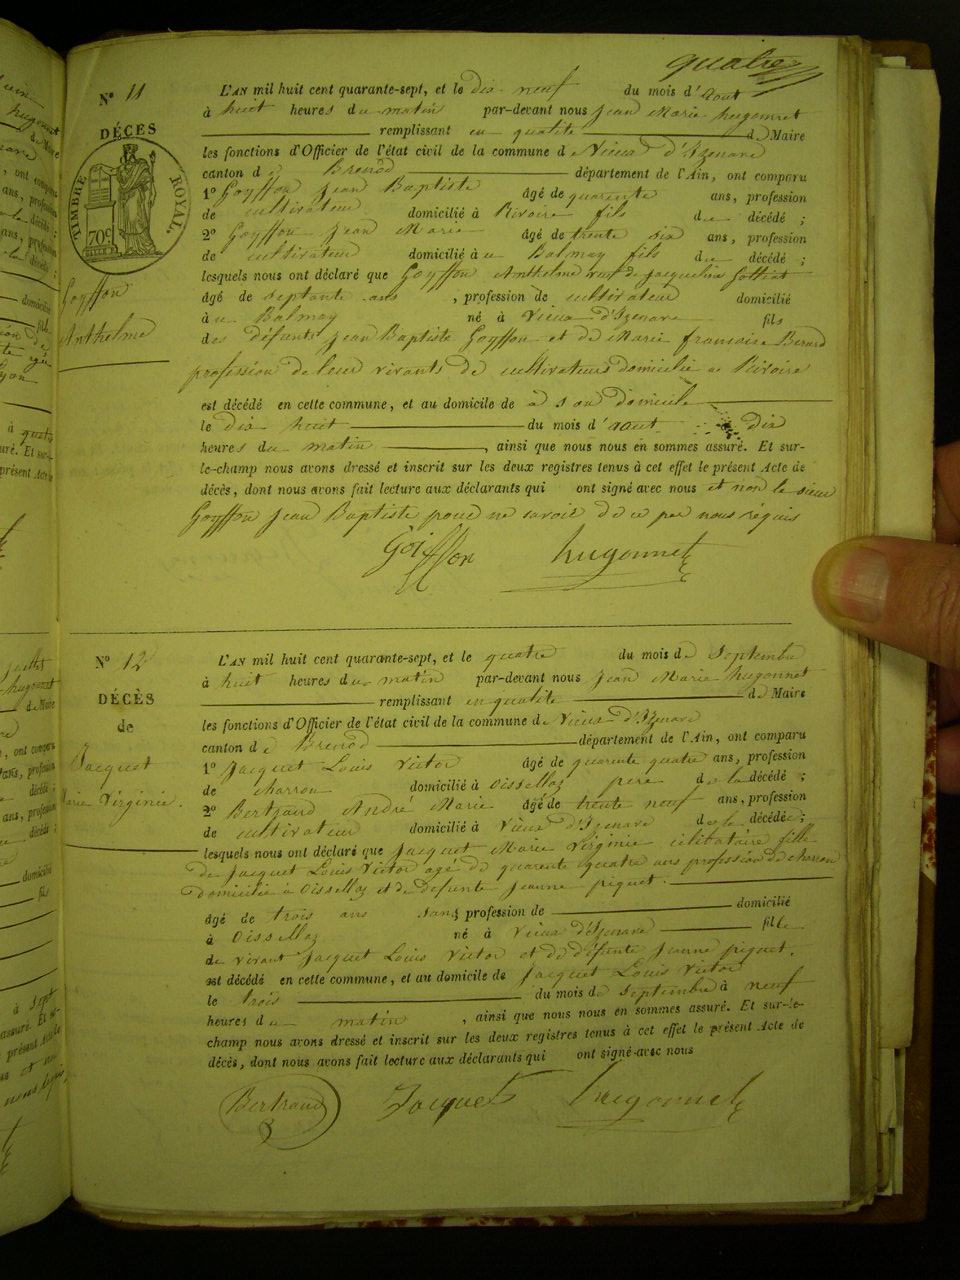 quatre
N° 11
DÉCES
TIMBRE ROYAL.
70c
Goyffon
Anthelme
L'AN mil huit cent quarante-sept, et le dix-neuf du mois d'aout
à huit heures du matin par-devant nous jean Marie hugonnet
remplissant en qualité de Maire
les fonctions d'Officier de l'état civil de la commune de Vieux d'Izenave
canton de Brenod département de l'Ain, ont comparu
1° Goyffon Jean Baptiste âgé de quarente ans, profession
de cultivateur domicilié à Rivoire fils du décédé ;
2° Goyffon Jean Marie âgé de trente six ans, profession
de cultivateur domicilié à u Balmay fils du décédé ;
lesquels nous ont déclaré que Goyffon Anthelme veuf de jacqueline
âgé de septante ans , profession de cultivateur domicilié
à u Balmay né à Vieux d'Izenave fils
des défunts jean Baptiste Goyffon et de Marie françoise Berard
profession de leur vivants de cultivateurs domicilié a Rivoire
est décédé en cette commune, et au domicile de à son domicile
le dix huit du mois d'aout à dix
heures du matin , ainsi que nous nous en sommes assuré. Et sur-
le-champ nous avons dressé et inscrit sur les deux registres tenus à cet effet le présent Acte de
décès, dont nous avons fait lecture aux déclarants qui ont signé avec nous et non le sieur
Goyffon jean Baptiste pour ne savoir de ce par nous réquis
Goiffon hugonnet
N° 12
DÉCÈS
de
Jacquet
Marie Virginie.
L'AN mil huit cent quarante-sept, et le quatre du mois de Septembre
à huit heures du matin par-devant nous jean Marie hugonnet
remplissant en qualité de Maire
les fonctions d'Officier de l'état civil de la commune de Vieux d'Izenave
canton de Brenod département de l'Ain, ont comparu
1° Jacquet Louis Victor âgé de quarente quatre ans, profession
de charron domicilié à Oissellaz père de la décédé ;
2° Bertrand André Marie âgé de trente neuf ans, profession
de cultivateur domicilié à Vieux d'Izenave de la décédée ;
lesquels nous ont déclaré que Jacquet Marie Virginie célibataire fille
de Jacquet Louis Victor agé de quarente quatre ans profession de charron
domicilié à Oissellaz et de defunte jeanne piquet.
âgé de trois ans sans profession de domicilié
à Oissellaz né à Vieux d'Izenave fille
de vivant Jacquet Louis Victor et de défunte Jeanne piquet.
est décédé en cette commune, et au domicile de Jacquet Louis Victor
le trois du mois de Septembre à neuf
heures du matin , ainsi que nous nous en sommes assuré. Et sur-le-
champ nous avons dressé et inscrit sur les deux registres tenus à cet effet le présent Acte de
décès, dont nous avons fait lecture aux déclarants qui ont signé avec nous
Bertrand Jacquet hugonnet